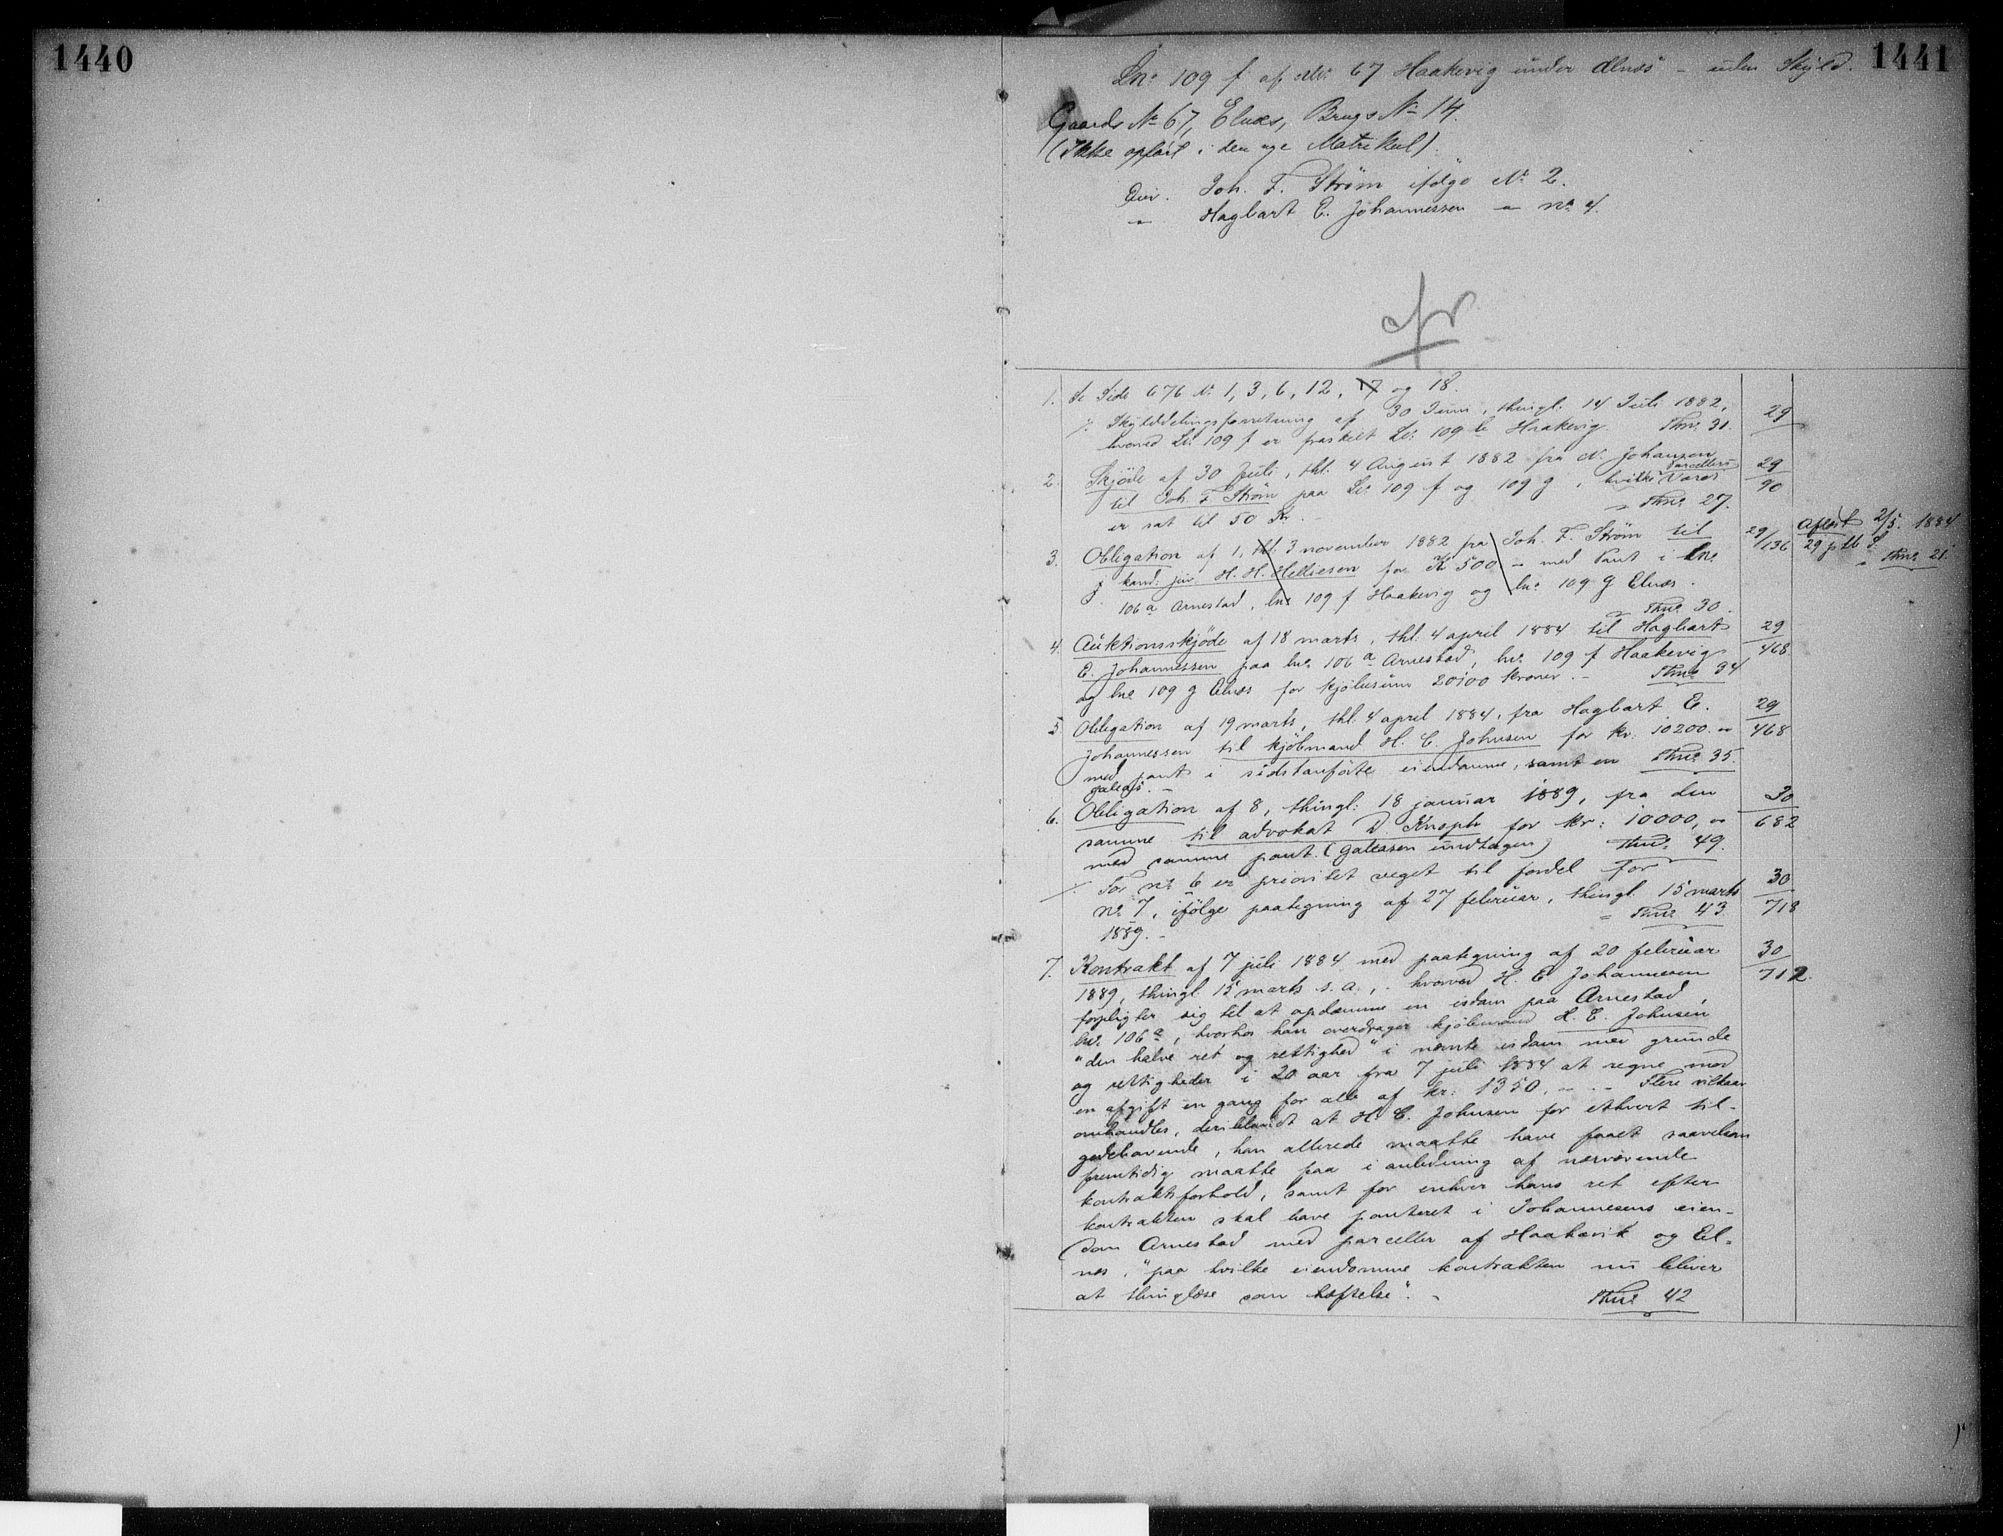 1440
1441
Lnr 109 f af Mtr 67 Haakevig under Elnæs - uden Skyld.
Gaards No 67, Elnæs, Brugs No 14.
(Ikke opført i den nye Matrikul)
Eier. Joh. F. Strøm ifølge No 2.
" Hagbart E. Johannessen " no 4.
1. Se Side 676 No 1, 3, 6, 12, 17 og 18.
Skylddelingsforretning af 30 Juni, thingl. 14 Juli 1882, 29
hvorved Lnr 109 f er fraskilt Lnr 109 b Haakevig. Thnr 31.
2. Skjøde af 30 Juli, thl. 4 August 1882 fra N. Johansen 29
til Joh. F. Strøm paa Lnr 109 f og 109 g, hvilke Parcellers Værdi 90
er sat til 50 Kr. - Thnr 27.
3. Obligation af 1, thl. 3 november 1882 fra Joh. F. Strøm til 29/136 Aflæst 2/5 1884
kand. jur H. H. Helliesen for Kr 500 - med Pant i lnr 29 Thnr 21
106 a Arnestad, lnr 109 f Haakevig og lnr 109 g Elnæs.
Thnr 30.
4. Auktionsskjøde af 18 marts, thl. 4 april 1884 til Hagbart 29
E. Johannessen paa lnr 106 a Arnestad, lnr 109 f Haakevig 468
og lnr 109 g Elnæs for kjøbesum 20100 kroner. - Thnr 34
5. Obligation af 19 marts, thl. 4 april 1884, fra Hagbart E. 29
Johannessen til kjøbmand H. C. Johnsen for kr. 10200 - 468
med pant i sidstanførte eiendomme, samt en Thnr 35.
galeas. -
6. Obligation af 8, thingl: 18 januar 1889, fra den 30
samme til advokat D. Knoph for kr: 10000, - 682
med samme pant. (galeasen undtagen) Thnr. 49.
For nr 6 er prioritet veget til fordel for 30
nr 7, ifølge paategning af 27 februar, thingl. 15 marts 718
1889. - Thnr 43
7. Kontrakt af 7 juli 1884 med paategning af 20 februar 30
1889, thingl 15 marts s.a., - hvorved H. E Johannesen 712.
forpligter sig til at opdæmme en isdam paa Arnestad,
lnr. 106 a, hvorhos han overdrager kjøbmand H. C. Johnsen
"den halve ret og rettighed" i nævnte isdam med grunde
og rettigheder i 20 aar fra 7 juli 1884 at regne mod
en afgift en gang for alle af kr: 1350. - . - Flere vilkaar
omhandles, deriblandt at H. C. Johnsen for ethvert til-
godehavende, han allerede maatte have faaet saavelsom
fremtidig maatte faa i anledning af nærværende
kontraktsforhold, samt for enhver hans ret efter
kontrakten skal have panteret i Johannesens eien-
dom Arnestad med parceller af Haakavik og El-
næs, "paa hvilke eiendomme kontrakten nu bliver
at thinglæse som heftelse". - Thnr 42